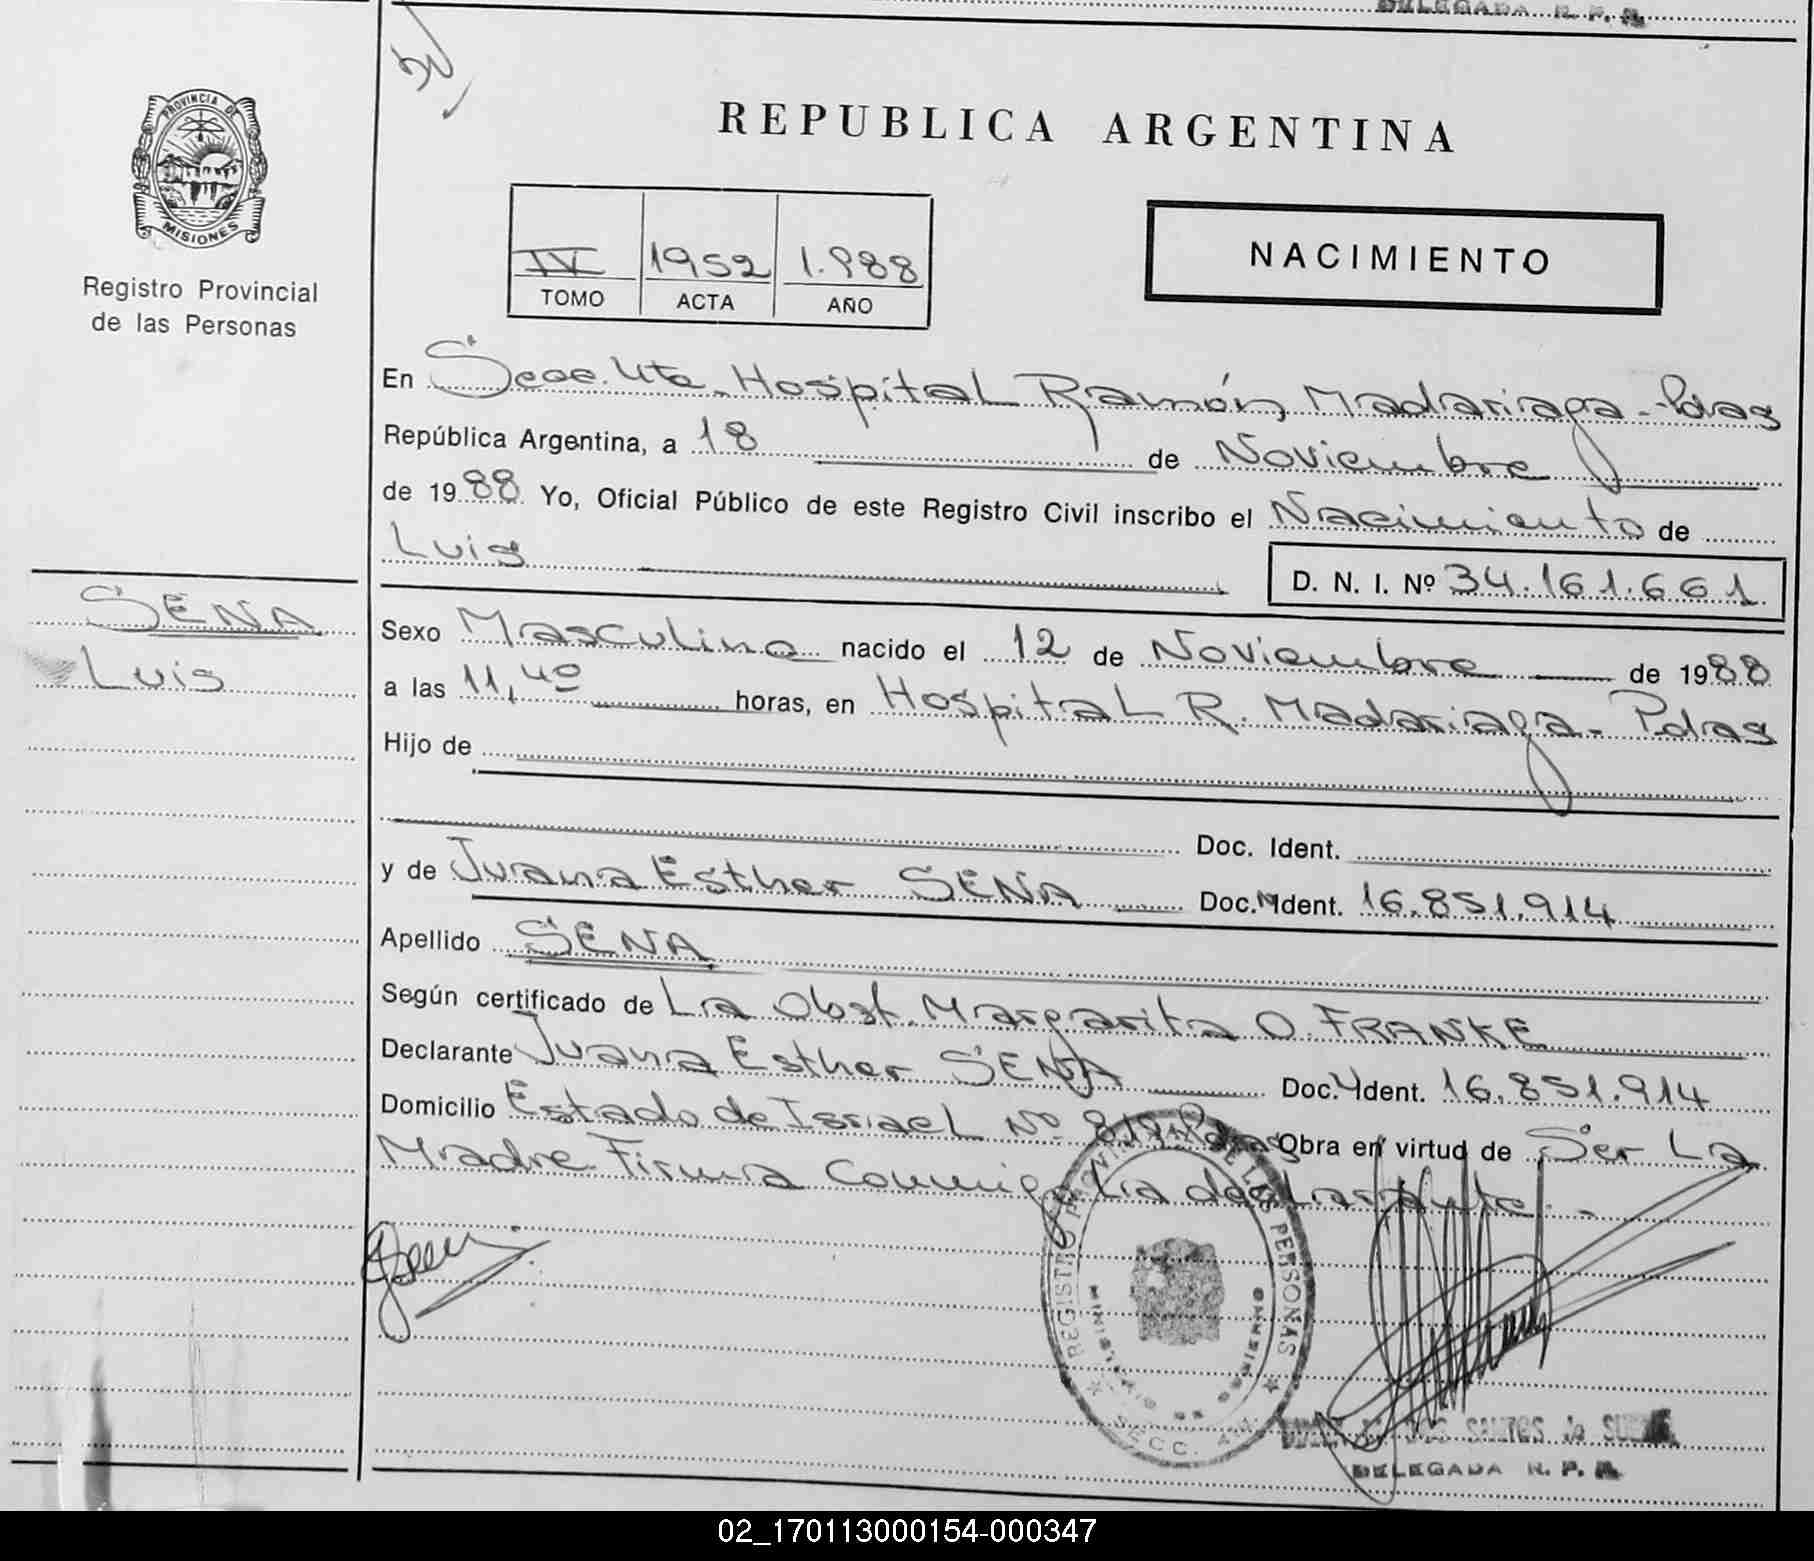 DELEGADA R. P. P.
PROVINCIA DE
MISIONES
Registro Provincial
de las Personas
REPUBLICA ARGENTINA
IV 1952 1.988
TOMO ACTA AÑO
NACIMIENTO
En Secc. 4ta. Hospital Ramón Madariaga - Pdas
República Argentina, a 18 de Noviembre
de 1988 Yo, Oficial Público de este Registro Civil inscribo el Nacimiento de
Luis
D. N. I. Nº 34.161.661
SENA
Luis
Sexo Masculino nacido el 12 de Noviembre de 1988
a las 11,40 horas, en Hospital R. Madariaga - Pdas
Hijo de
Doc. Ident.
y de Juana Esther SENA Doc. Ident. 16.851.914
Apellido SENA
Según certificado de La Obst. Margarita O. FRANKE
Declarante Juana Esther SENA Doc. Ident. 16.851.914
Domicilio Estado de Israel Nº 819 Pdas Obra en virtud de Ser La
Madre Firma Conmigo La declarante. -
REGISTRO PROVINCIAL DE LAS PERSONAS
MINISTERIO DE GOBIERNO
SECC.
DOS SANTOS de
DELEGADA R. P. P.
02_170113000154-000347